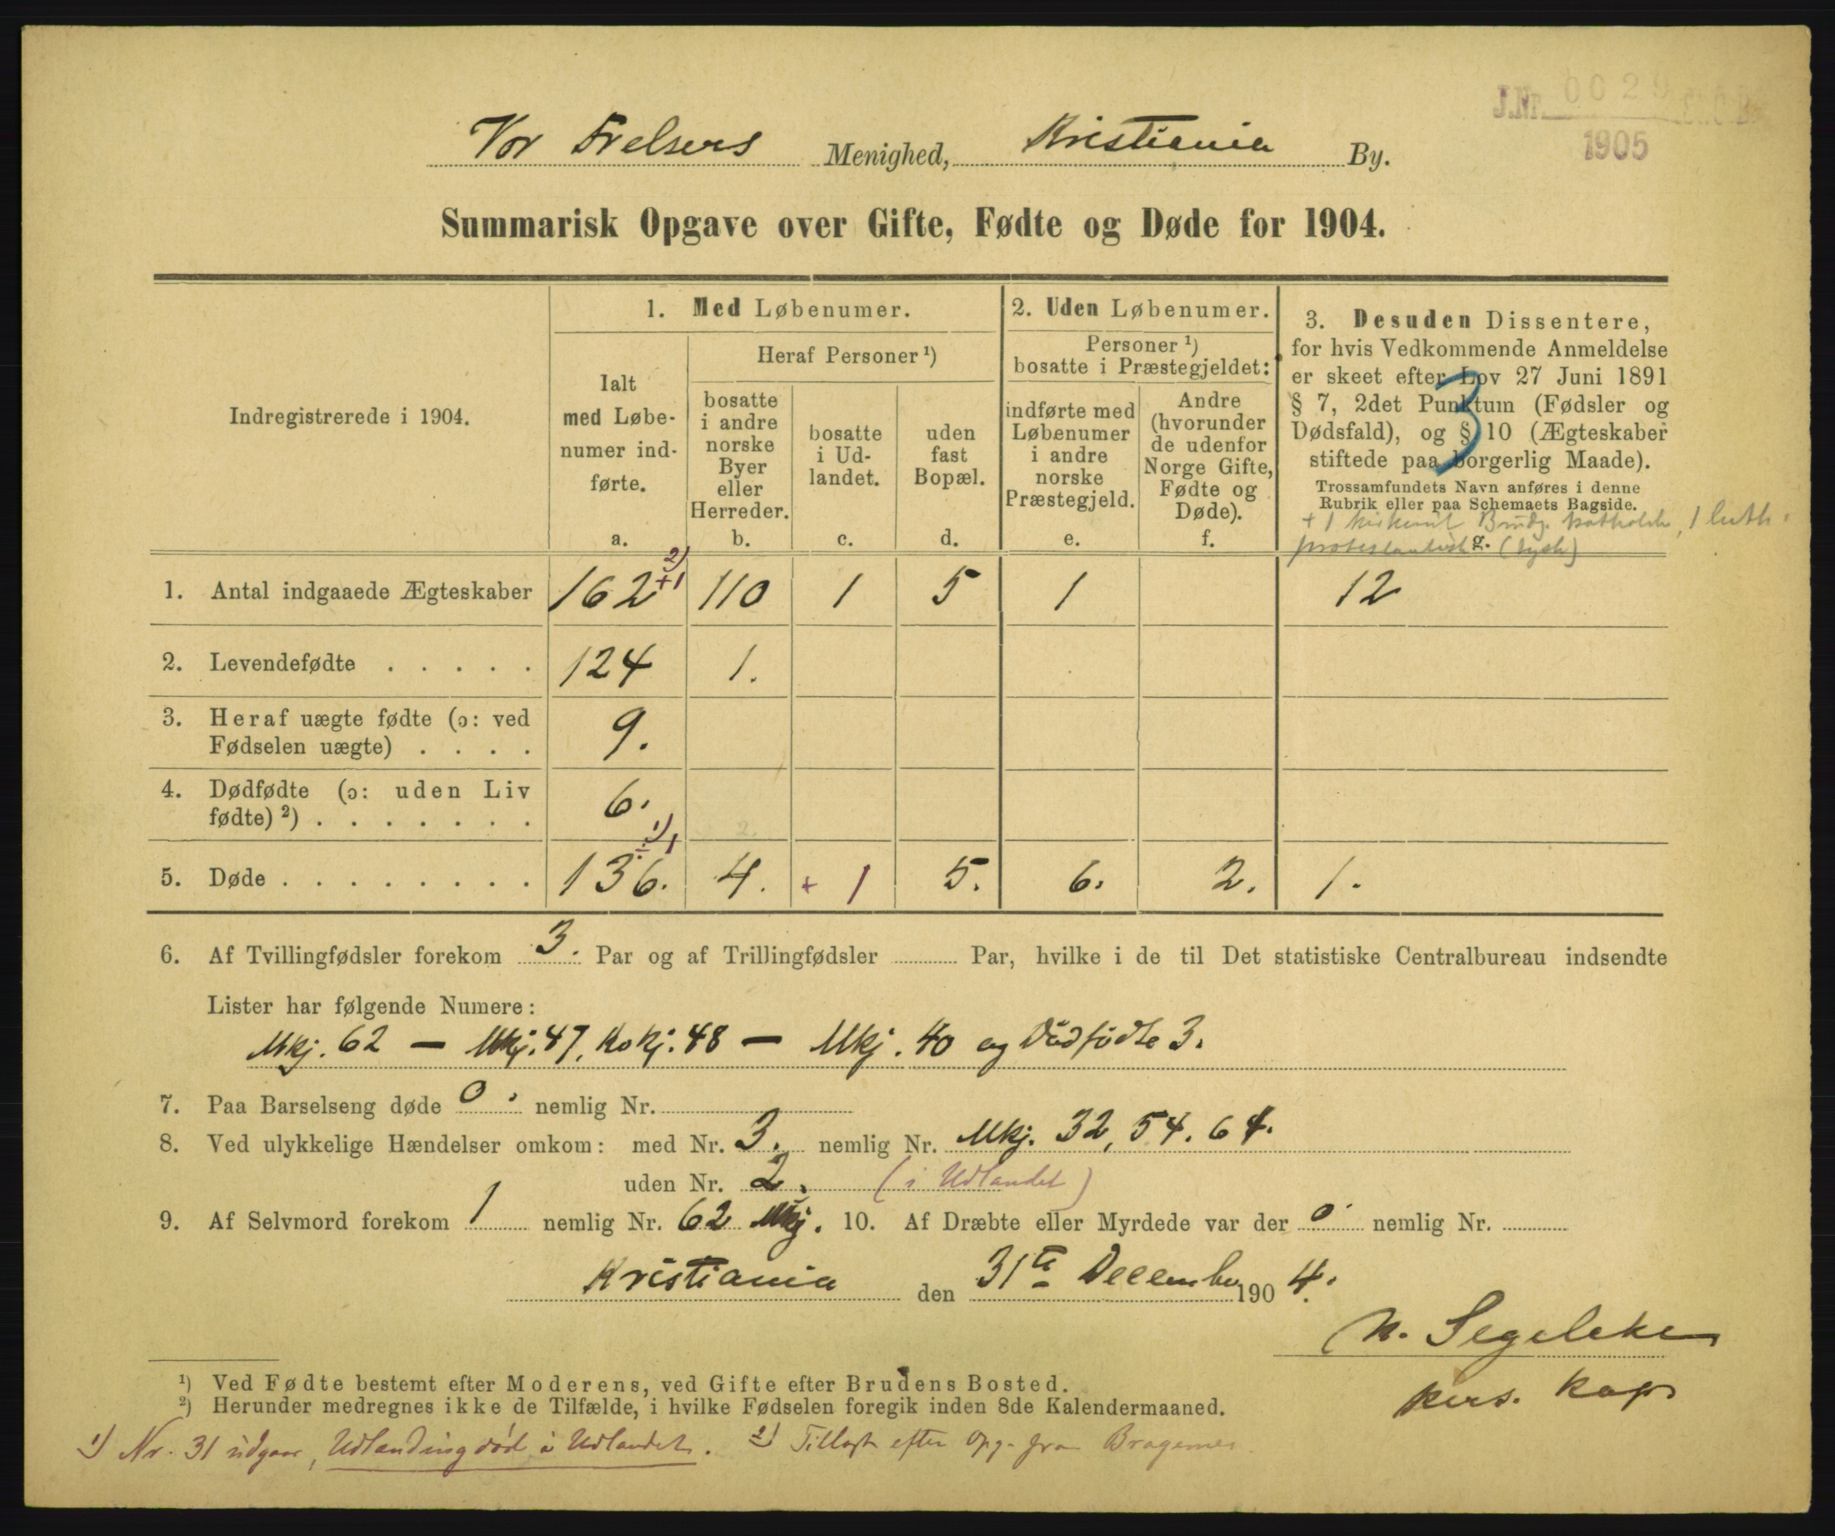 J.Nr. 0029
1905
Vor Frelsers Menighed, Kristiania By.
Summarisk Opgave over Gifte, Fødte og Døde for 1904.
Indregistrerede i 1904.
1. Med Løbenumer.
Ialt med Løbe-numer ind-førte.
a.
Heraf Personer ¹)
bosatte i andre norske Byer eller Herreder.
b.
bosatte i Ud-landet.
c.
uden fast Bopæl.
d.
2. Uden Løbenumer.
Personer ¹)
bosatte i Præstegjeldet:
indførte med Løbenumer i andre norske Præstegjeld.
e.
Andre (hvorunder de udenfor Norge Gifte, Fødte og Døde).
f.
3. Desuden Dissentere,
for hvis Vedkommende Anmeldelse
er skeet efter Lov 27 Juni 1891
§ 7, 2det Punktum (Fødsler og
Dødsfald), og § 10 (Ægteskaber
stiftede paa borgerlig Maade).
3
Trossamfundets Navn anføres i denne
Rubrik eller paa Schemaets Bagside.
+ 1 Brudg. katholsk, 1 luth.
protestantisk g. (tysk)
1. Antal indgaaede Ægteskaber 162 +1 2) 110 1 5 1 12
2. Levendefødte . . . . . 124 1.
3. Heraf uægte fødte (ɔ: ved
Fødselen uægte) . . . . 9.
4. Dødfødte (ɔ: uden Liv
fødte) ²) . . . . . . . 6.
2.
5. Døde . . . . . . . . . 136. ÷1 1) 4. + 1 5. 6. 2. 1.
6. Af Tvillingfødsler forekom 3. Par og af Trillingfødsler Par, hvilke i de til Det statistiske Centralbureau indsendte
Lister har følgende Numere:
Mkj. 62 — Mkj. 47, Kvkj. 48 — Mkj. 40 og Dødfødte 3.
7. Paa Barselseng døde 0. nemlig Nr.
8. Ved ulykkelige Hændelser omkom: med Nr. 3. nemlig Nr. Mkj. 32, 54. 64.
uden Nr. 2. (i Udlandet)
9. Af Selvmord forekom 1 nemlig Nr. 62 Mkj. 10. Af Dræbte eller Myrdede var der 0 nemlig Nr.
Kristiania den 31te December 1904.
N. Segelcke
pers. Kap.
¹) Ved Fødte bestemt efter Moderens, ved Gifte efter Brudens Bosted.
²) Herunder medregnes ikke de Tilfælde, i hvilke Fødselen foregik inden 8de Kalendermaaned.
1) Nr. 31 udgaar, Udlænding død i Udlandet. 2) Tillagt efter Opg. fra Bragernes.